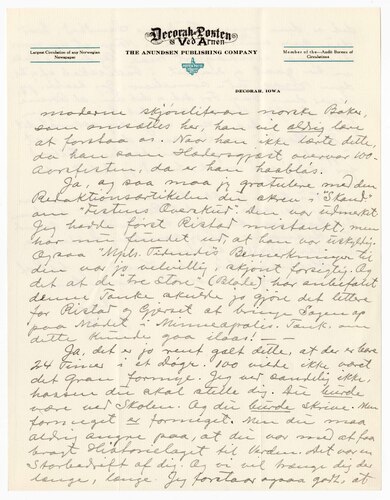 Decorah-Posten
og Ved Arnen
Largest Circulation of any Norwegian
Newspaper
THE ANUNDSEN PUBLISHING COMPANY
Member of the Audit Bureau of
Circulations
DECORAH, IOWA
moderne skjønliterære norske Bøker,
som omsættes her, han vil aldrig lære
at forstaa os. Naar han ikke lærte dette,
da han som Hædersgjæst overvar 100-
Aarsfesten, da er han haabløs.
Ja, og saa maa jeg gratulere med den
Redaktionsartikelen du skrev i "Skand"
om "Festens Overskud". Den var udmerket
Jeg havde først Ristad mistænkt, men
har nu fundet ud, at han var uskyldig.
Ogsaa "Mpls. Tidende's Bemerkninger til
den var jo velvillig, skjønt forsigtig. Og
det at de "tre Store" (Blade) har anbefalet
denne Tanke skulde jo gjøre det lettere
for Ristad og Gjerset at bringe Sagen op
paa Mødet i Minneapolis. Tænk om
dette kunde gaa ilaas! —
Ja, det er jo rent galt dette, at der er bare
24 Timer i et Døgn. 100 vilde ikke været
det Gran formeget. Jeg ved sandelig ikke,
hvordan du skal stelle dig. Du burde
være ved Skolen. Og du burde skrive. Men
formeget er formeget. Men du maa
aldrig angre paa, at du var med at faa
bragt Historielaget til Verden. Det var en
Storbedrift af dig. Og vi vil trænge dig der
længe, længe. Jeg forstaar ogsaa godt, at